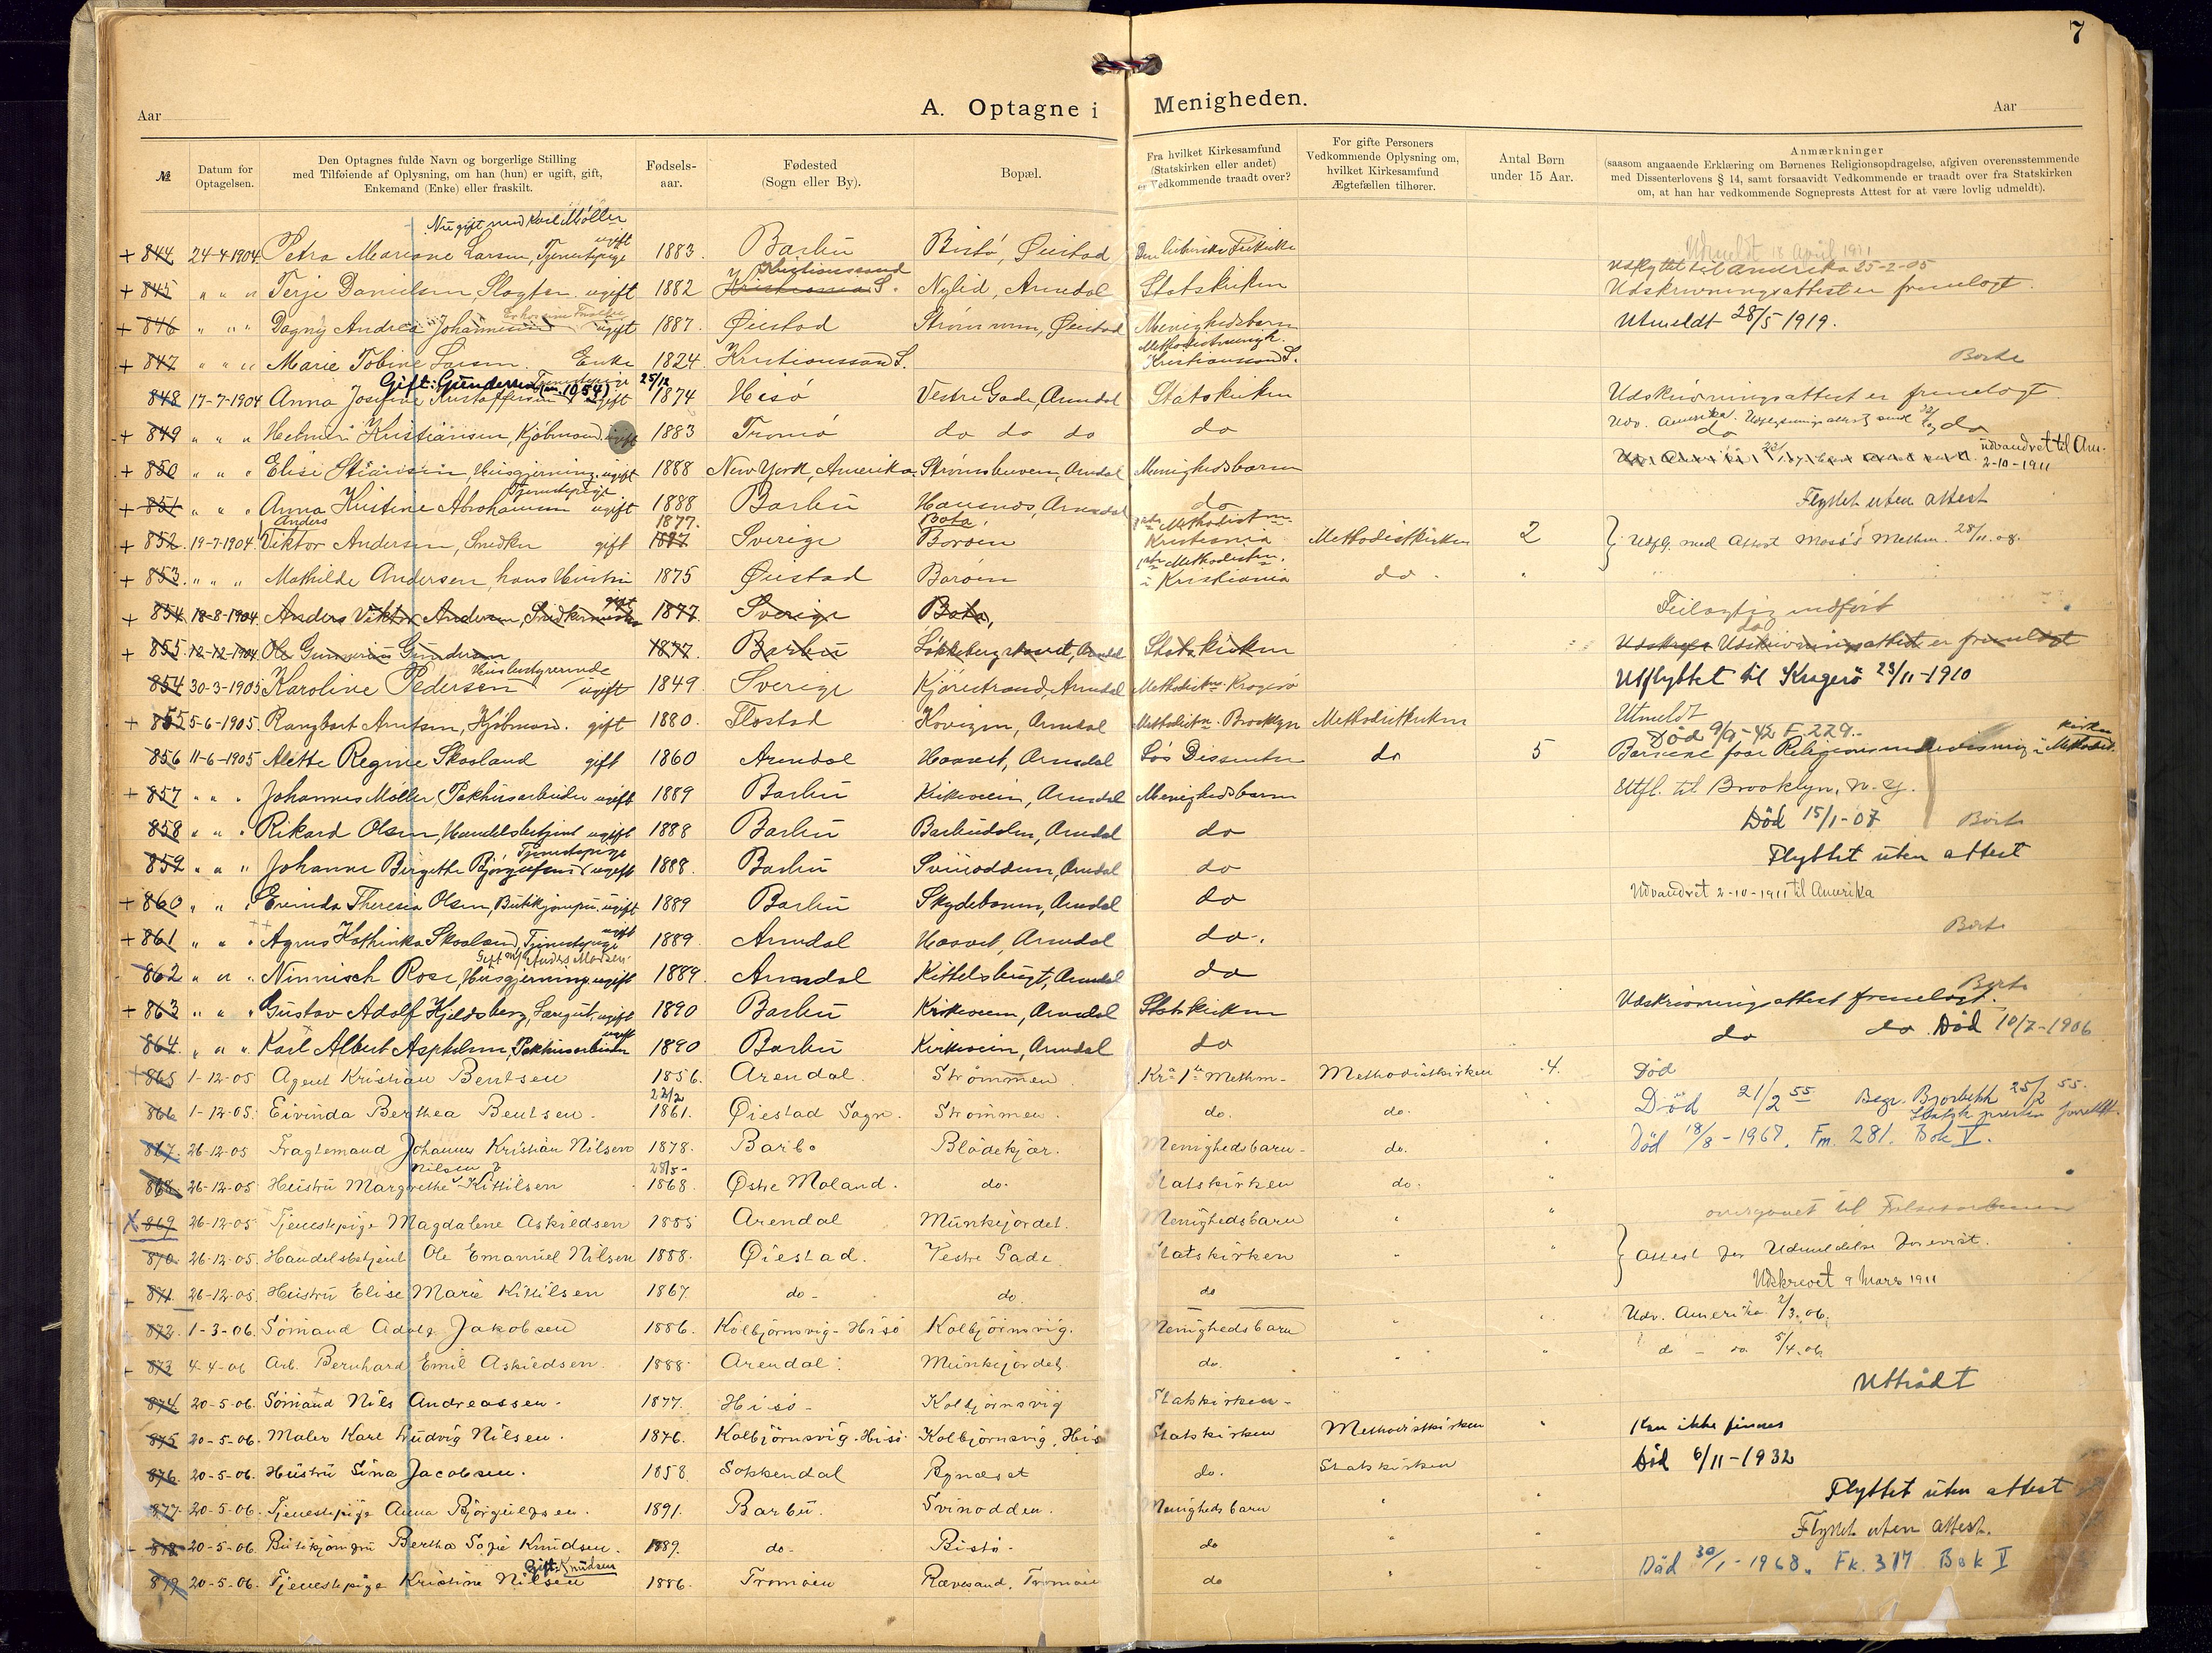 7
Aar
A. Optagne i Menigheden.
Aar
№
Datum for Optagelsen.
Den Optagnes fulde Navn og borgerlige Stilling med Tilføiende af Oplysning, om han (hun) er ugift, gift, Enkemand (Enke) eller fraskilt.
Fødselsaar.
Fødested (Sogn eller By).
Bopæl.
Fra hvilket Kirkesamfund (Statskirken eller andet) er Vedkommende traadt over?
For gifte Personers Vedkommende Oplysning om, hvilket Kirkesamfund Ægtefællen tilhører.
Antal Børn under 15 Aar.
Anmærkninger (saasom angaaende Erklæring om Børnenes Religionsopdragelse, afgiven overensstemmende med Dissenterlovens § 14, samt forsaavidt Vedkommende er traadt over fra Statskirken om, at han har vedkommende Sogneprests Attest for at være lovlig udmeldt).
Nu gift med Karl Møller
+ 844 24-4-1904 Petra Mariane Larsen, Tjenestepige ugift 1883 Barbu Bistø, Øiestad Udmeldt 18 April 1911
+ 845 " " " Terje Danielsen, Slagter ugift 1882 Kristianssand S. Nylid, Arendal Statskirken Udflyttet til Amerika 25-2-05 Udskrivningsattest er fremlagt.
+ 846 " " " Dagny Andrea Johannesen ugift 1887. Øiestad Strømmen, Øiestad Menighedsbarn Utmeldt 28/5 1919.
+ 847 " " " Marie Tobine Larsen. Enke 1824. Kristianssand S. Methodistmenigh. Kristianssand S. Borte
Gift: Gundersen (1954) Tjenestepige 25/12
848 17-7-1904 Anna Josefine Kristoffersen ugift 1874 Hisø Vestre Gade, Arendal Statskirken Udskrivningsattest er fremlagt.
+ 849 " " " Helmer Kristiansen, Kjøbmand. ugift 1883 Tromø do do do do Udv. Amerika. do do
+ 850 " " " Elise Stiansen, Husgjerning. ugift 1888 New York, Amerika Strømsbuveien, Arendal Menighedsbarn udvandret til Am. 2-10-1911
+ 851 " " " Anna Kristine Abrahamsen Tjenestepige ugift 1888 Barbu Havsnes, Arendal do Flyttet uten attest
+ 852. 19-7-1904 Anders Viktor Andersen, Snedker gift 1877. 1887 Sverige Bota Borøen 1ste Methodistm. Kristiania Methodistkirken 2 Udfl. med Attest Moss's Methm. 28/11.08.
+ 853. " " " Mathilde Andersen, hans Hustru 1875 Øiestad Borøen 1ste Methodistm. i Kristiania do. "
+ 854 18-8-1904 Anders Viktor Andersen, Snedkermester gift 1877. Sverige Bota, Feilagtig indført
+ 855. 12-12-1904 Ole Gunnerius Gundersen 1877. Barbu Statskirken do Udskrivningsattest er fremlagt
854 30-3-1905 Karoline Pedersen Husbestyrerinde ugift 1849. Sverige Kjørestrand, Arendal Methodistm. Kragerø Utflyttet til Kragerø 23/11-1910
+ 855 5-6-1905. Rangbart Arntsen, Kjøbmand. gift 1880. Flostad Arendal Methodistm. Brooklyn Methodistkirken Utmeldt Død 9/9-42 F. 229.
856 11-6-1905 Alette Regine Skaaland gift 1860 Arendal Haavet, Arendal Løs Dissenter do 5 Børnene faar Religionsundervisning i Methodist kirken
+ 857 " " " Johannes Møller, Pakhusarbeider ugift 1889 Barbu Kirkeveien, Arendal Menighedsbarn Utfl. til Brooklyn, N. Y.
858 " " " Rikard Olsen, Handelsbetjent ugift 1888 Barbu Barbudalen, Arendal do Død 15/1-07 Borte
859 " " " Johanne Birgitte Bjørgulfsen Tjenestepige ugift 1888. Barbu Svinodden, Arendal do Flyttet uten attest
+ 860 " " " Evinda Theresia Olsen, Butikjomfru. ugift 1889 Barbu Skydebanen, Arendal do Udvandret 2-10-1911 til Amerika
+ 861 " " " Agnes Kathinka Skaaland, Tjenestepige ugift 1889. Arendal Haavet, Arendal do. Borte
Gift m/ Anders Madsen
862 " " " Ninnisch Rose, Husgjerning, ugift 1889. Arendal Kittelsbugt, Arendal do
+ 863 " " " Gustav Adolf Hjeldsberg, Læregut, ugift 1890 Barbu Kirkeveien, Arendal Statskirken Udskrivningsattest fremlagt. Borte
864. " " " Karl Albert Aspholm, Pakhusarbeider ugift 1890 Barbu Kirkeveien, Arendal do do do Død 10/7-1906
+ 865 1-12-05 Agent Kristian Bentsen 1856. Arendal. Strømmen. Kra 1te Methm- Methodistkirken 4. Død
866 1-12-05. Eivinda Berthea Bentsen. 22/2 1861. Øiestad Sogn. Strømmen. do. do. " Død 21/2 55 Begr. Bjorbekk 25/2 55.
867. 26-12-05 Fragtemand Johannes Kristian Nilsen 1878. Barbo Blødekjær. Menighedsbarn- do. " Død 18/8-1967. Fm. 281. Bok V.
868. 26-12-05 Hustru Margrethe Kittilsen Nilsen 28/5- 1868. Østre Moland. do. Statskirken do. "
X 869 26-12-05 Tjenestepige Magdalene Askildsen 1885 Arendal Munkejordet. Menighedsbarn " " overgaaet til Frelsesarmeen
870. 26-12-05. Handelsbetjent Ole Emanuel Nilsen 1888. Øiestad. Vestre Gade. Statskirken " " Attest for Udmeldelse forevist.
+ 871 26-12-05. Hustru Elise Marie Kittilsen 1867. do- do. do Udskrevet 9 Mars 1911
872. 1-3-06. Sømand Adolf Jakobsen 1886. Kolbjørnsvig-Hisø Kolbjørnsvig. Menighedsbarn " " Udv. Amerika 2/3.06.
+ 873 4-4-06 Arb. Bernhard Emil Askildsen. 1888. Arendal. Munkejordet do. " " do - do. 5/4.06.
874 20-5-06. Sømand Nils Andreassen. 1877. Hisø- Kolbjørnsvig Statskirken- Uttrådt
875 20-5-06. Maler Karl Ludvig Nilsen. 1876. Kolbjørnsvig-Hisø. Kolbjørnsvig, His Statskirken Methodistkirken " Kan ikke finnes
876. 20-5-06. Hustru Sina Jacobsen. 1858. Sokkendal do. Statskirken Død 6/11-1932
877. 20-5-06. Tjenestepige Anna Bjørgulfsen. 1891. Barbu. Svinodden. Menighedsbarn " " Flyttet uten attest
878 20-5-06. Butikjomfru Bertha Sofie Knudsen. 1889. do- Bistø. do " " Flyttet uten attest.
Gift: Knudsen
879 20-5-06. Tjenestepige Kristine Nilsen 1886. Tromøen Rævesand, Tromøen do " " Død 30/1-1968. Fk. 317 Bok V